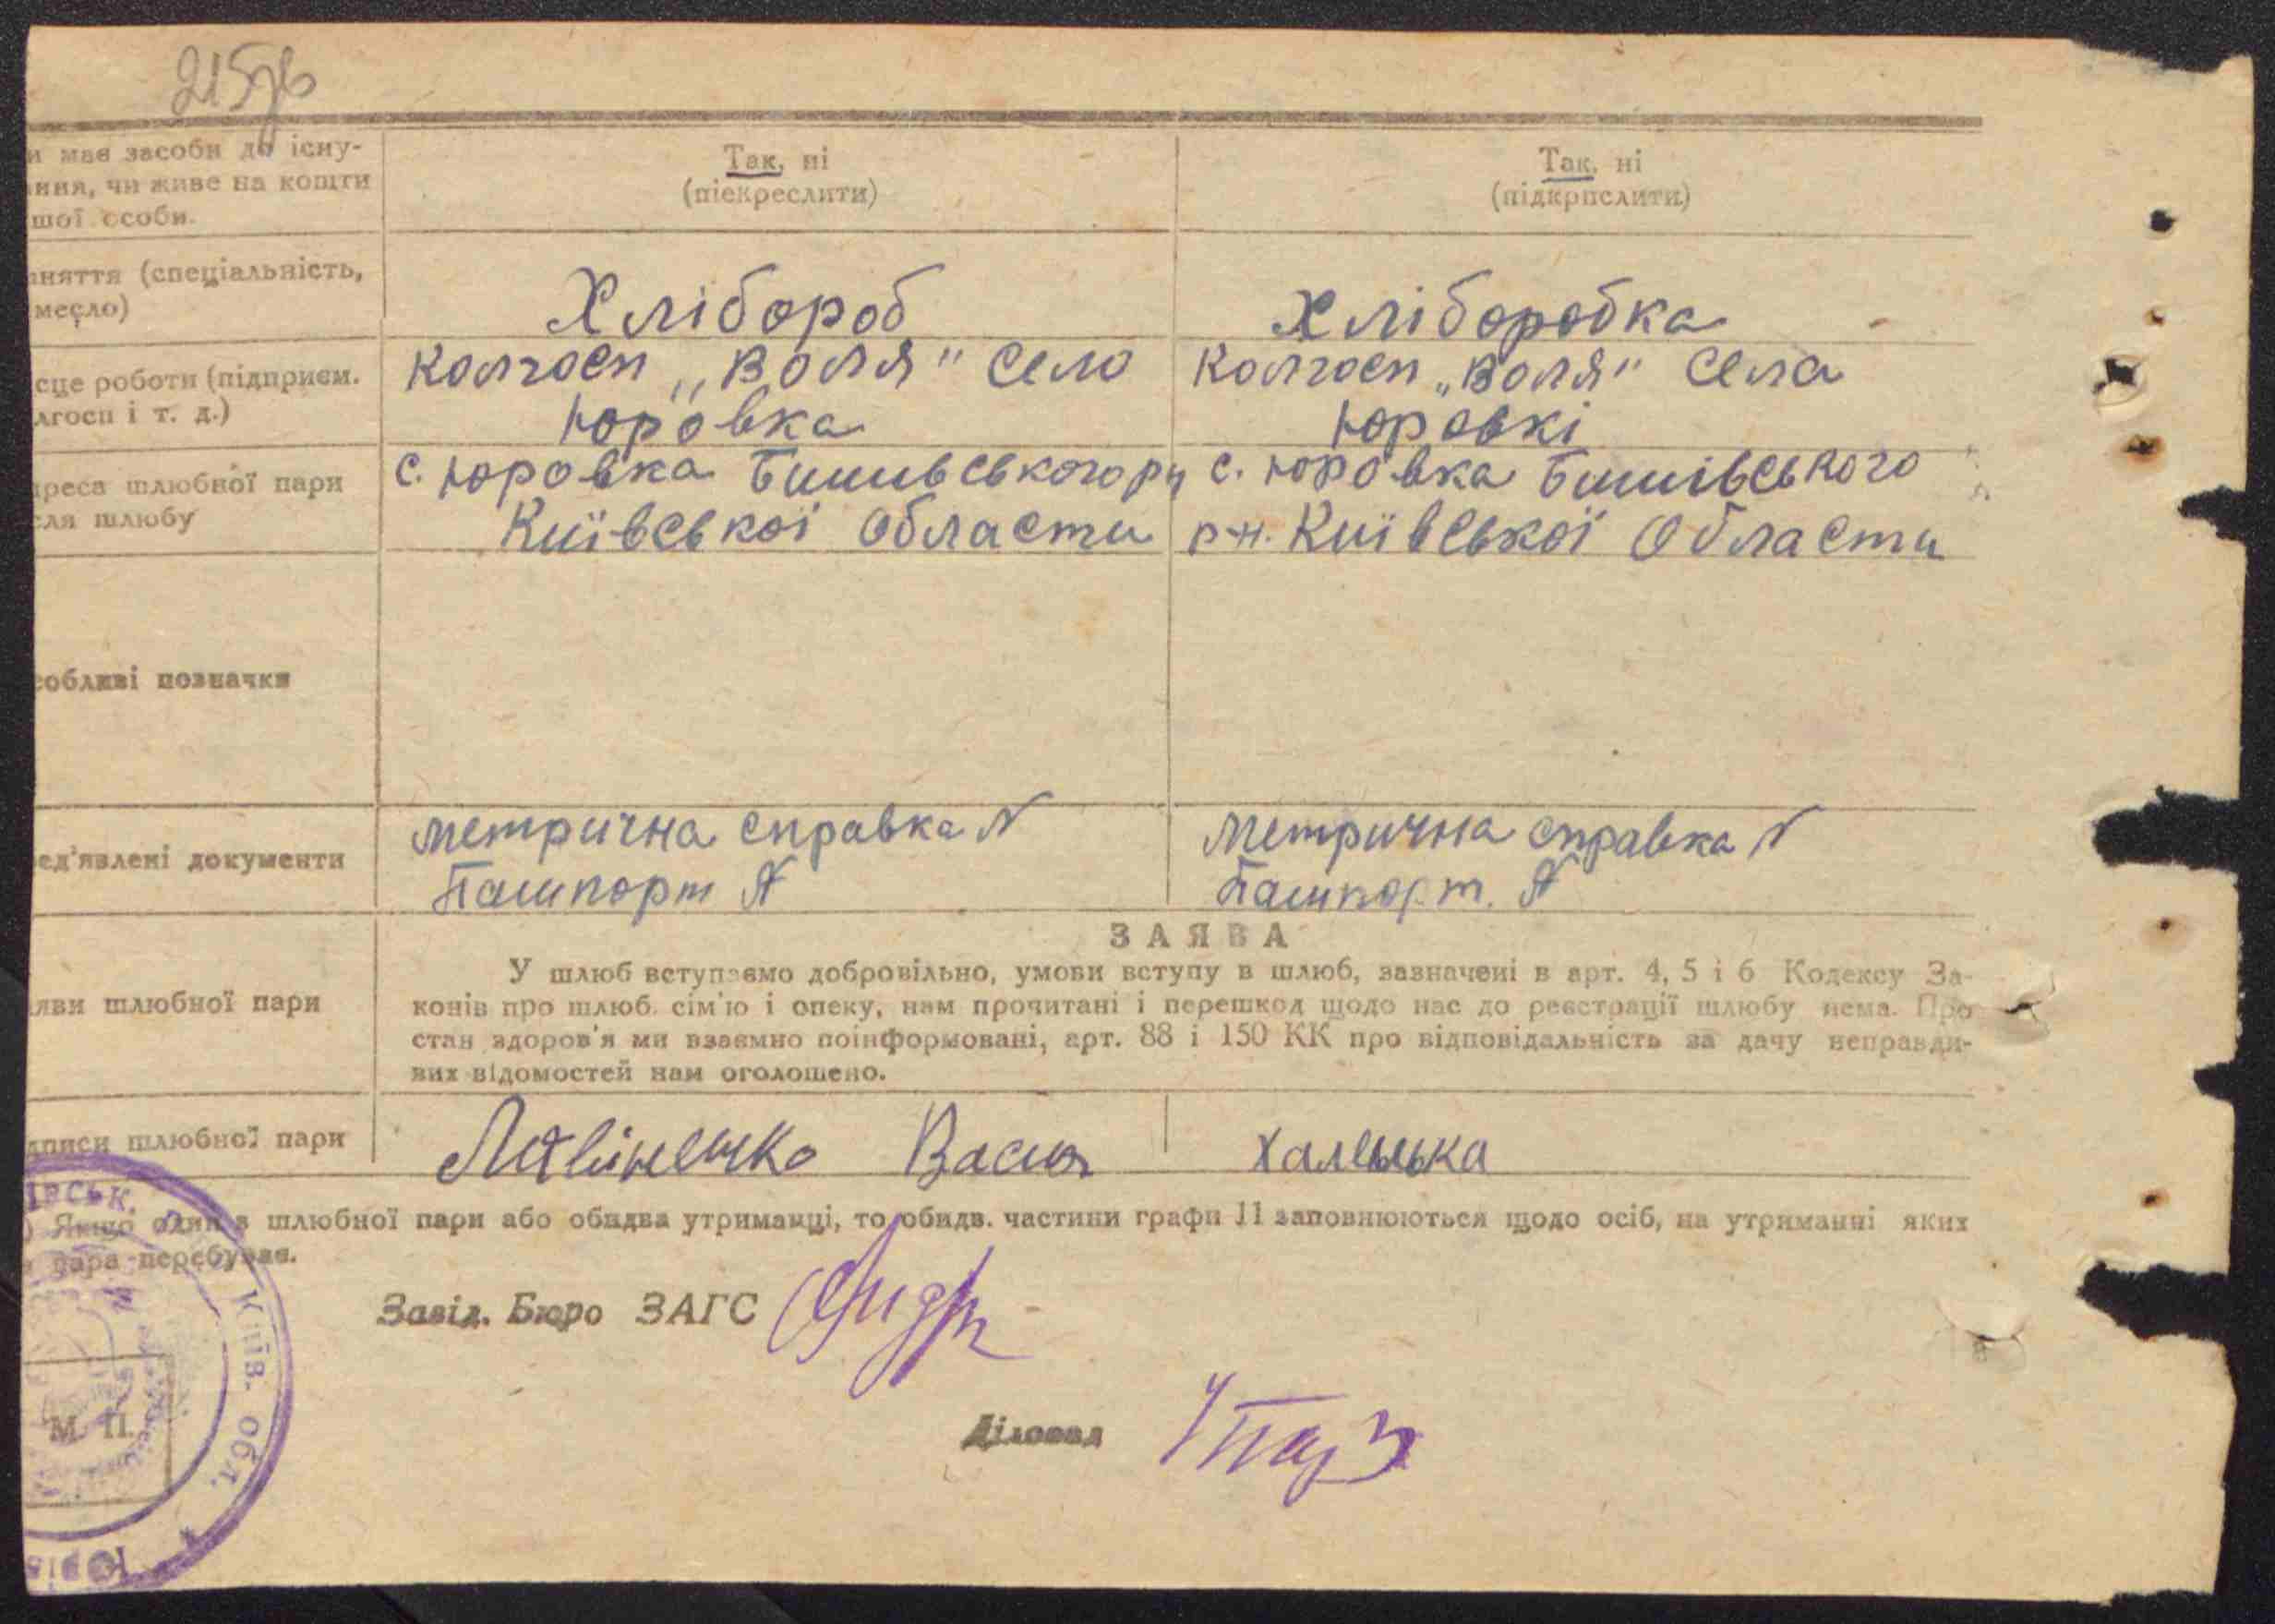 215зв
и має засоби до існу-
ння, чи живе на кошти
шої особи.
Так, ні
(піекреслити)
Так, ні
(підкрпслити)
няття (спеціальність,
месло)
Хлібороб
Хліборобка
сце роботи (підприєм.
лгосп і т. д.)
Колгосп „Воля" село
Юровка
Колгосп „Воля" села
Юровкі
дреса шлюбної пари
сля шлюбу
с. Юровка Бишівського рн
Київської Области
с. Юровка Бишівського
р-н. Київської Области
собливі позначки
ед'явлені документи
метрична справка N
Пашпорт N
метрична справка N
Пашпорт. N
ЗАЯВА
аяви шлюбної пари
У шлюб вступаємо добровільно, умови вступу в шлюб, зазначені в арт. 4, 5 і 6 Кодексу За-
конів про шлюб. сім'ю і опеку, нам прочитані і перешкод щодо нас до реєстрації шлюбу нема. Про
стан здоров'я ми взаємно поінформовані, арт. 88 і 150 КК про відповідальність за дачу неправди-
вих відомостей нам оголошено.
дписи шлюбної пари
Вася
) Якщо один з шлюбної пари або обидва утриманці, то обидв. частини графи 11 заповнюються щодо осіб, на утриманні яких
пара перебуває.
Завід. Бюро ЗАГС
Діловод
М. П.
Київ. обл.